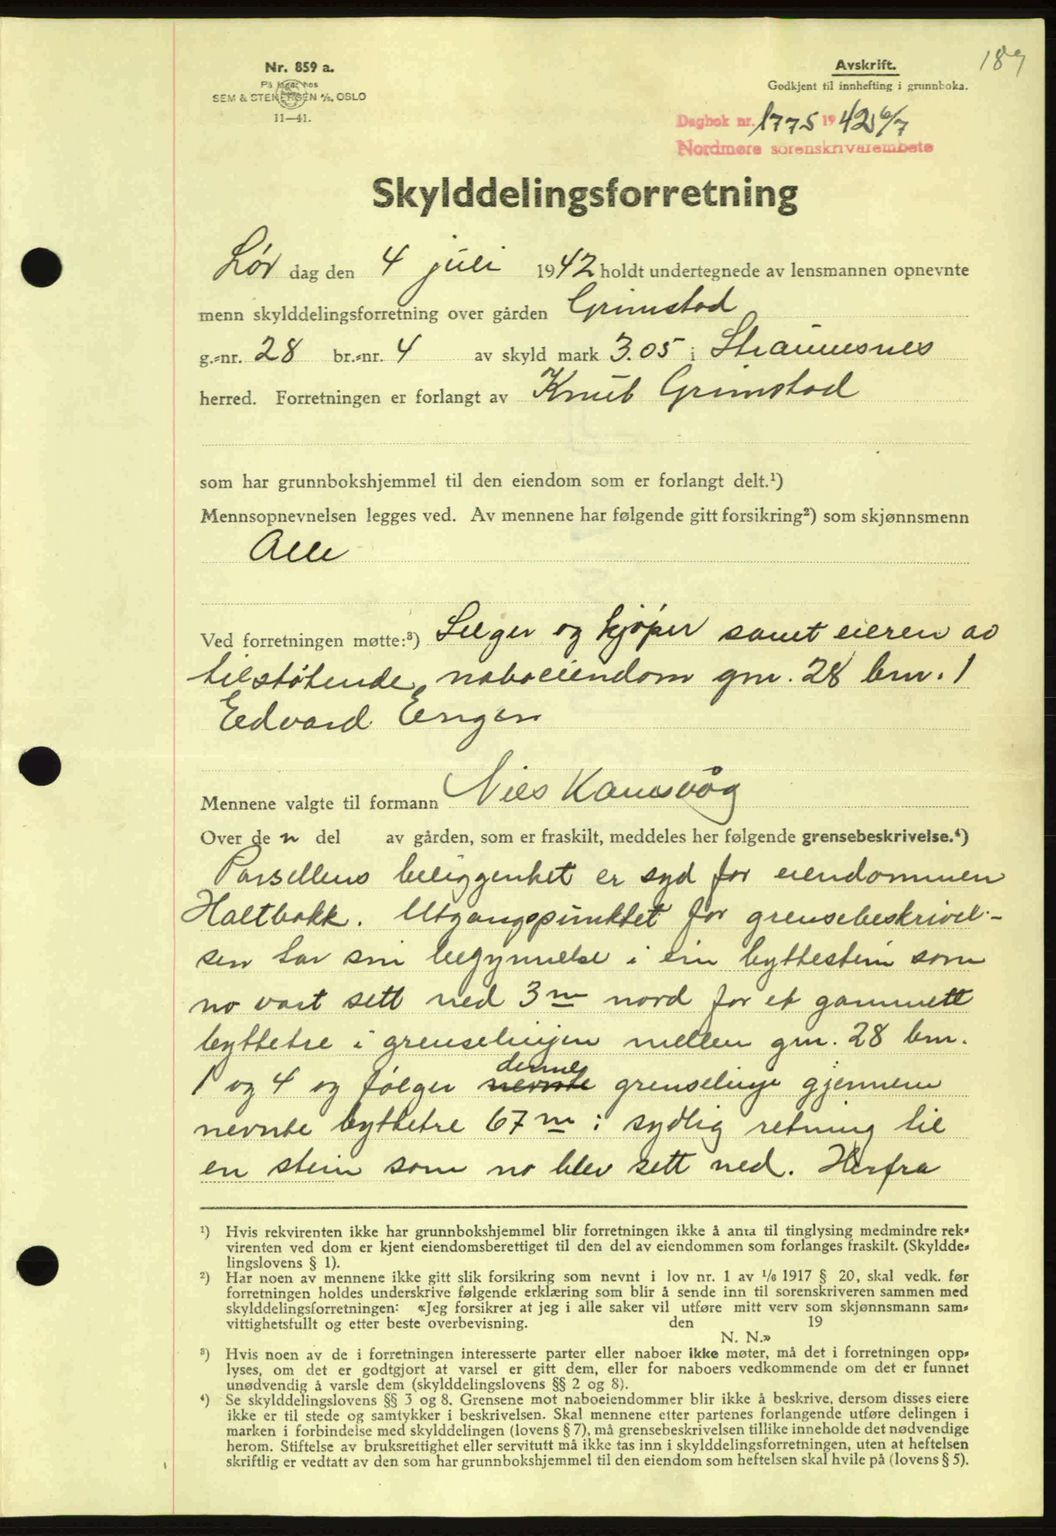 189
Nr. 859 a.
På lager hos
SEM & STENERSEN A/S, OSLO
11—41.
Avskrift.
Godkjent til innhefting i grunnboka.
Dagbok nr. 1775 1942 6/7
Nordmøre sorenskriverembete
Skylddelingsforretning
Lør dag den 4 juli 1942 holdt undertegnede av lensmannen opnevnte
menn skylddelingsforretning over gården Grimstad
g.-nr. 28 br.-nr. 4 av skyld mark 3.05 i Straumsnes
herred. Forretningen er forlangt av Knut Grimstad
som har grunnbokshjemmel til den eiendom som er forlangt delt.¹)
Mennsopnevnelsen legges ved. Av mennene har følgende gitt forsikring²) som skjønnsmenn
Alle
Ved forretningen møtte:³) Selger og kjøper samt eieren av
tilstøtende naboeiendom gnr. 28 bnr. 1
Edvard Engen
Mennene valgte til formann Nils Kanesvåg
Over de n del av gården, som er fraskilt, meddeles her følgende grensebeskrivelse.⁴)
Parsellens beliggenhet er syd for eiendommen
Haltbakk. Utgangspunktet for grensebeskrivel-
sen tar sin begynnelse i ein byttestein som
no vart sett ned 3 m nord for et gammelt
byttetre i grenselinjen mellem gnr. 28 bnr.
1 og 4 og følger nevnte denne grenselinje gjennem
nevnte byttetre 67 m i sydlig retning til
en stein som no blev sett ned. Herfra
¹) Hvis rekvirenten ikke har grunnbokshjemmel blir forretningen ikke å anta til tinglysing medmindre rek-
virenten ved dom er kjent eiendomsberettiget til den del av eiendommen som forlanges fraskilt. (Skyldde-
lingslovens § 1).
²) Har noen av mennene ikke gitt slik forsikring som nevnt i lov nr. 1 av 1/6 1917 § 20, skal vedk. før
forretningen holdes underskrive følgende erklæring som blir å sende inn til sorenskriveren sammen med
skylddelingsforretningen: «Jeg forsikrer at jeg i alle saker vil utføre mitt verv som skjønnsmann sam-
vittighetsfullt og etter beste overbevisning. den 19
N. N.»
³) Hvis noen av de i forretningen interesserte parter eller naboer ikke møter, må det i forretningen opp-
lyses, om det er godtgjort at varsel er gitt dem, eller for naboers vedkommende om det er funnet
unødvendig å varsle dem (skylddelingslovens §§ 2 og 8).
⁴) Se skylddelingslovens §§ 3 og 8. Grensene mot naboeiendommer blir ikke å beskrive, dersom disses eiere
ikke er til stede og samtykker i beskrivelsen. Skal mennene etter partenes forlangende utføre delingen i
marken i forbindelse med skylddelingen (lovens § 7), må grensebeskrivelsen tillike inneholde det nødvendige
herom. Stiftelse av bruksrettighet eller servitutt må ikke tas inn i skylddelingsforretningen, uten at heftelsen
skriftlig er vedtatt av den som har grunnbokshjemmel til den eiendom som heftelsen skal hvile på (lovens § 5).